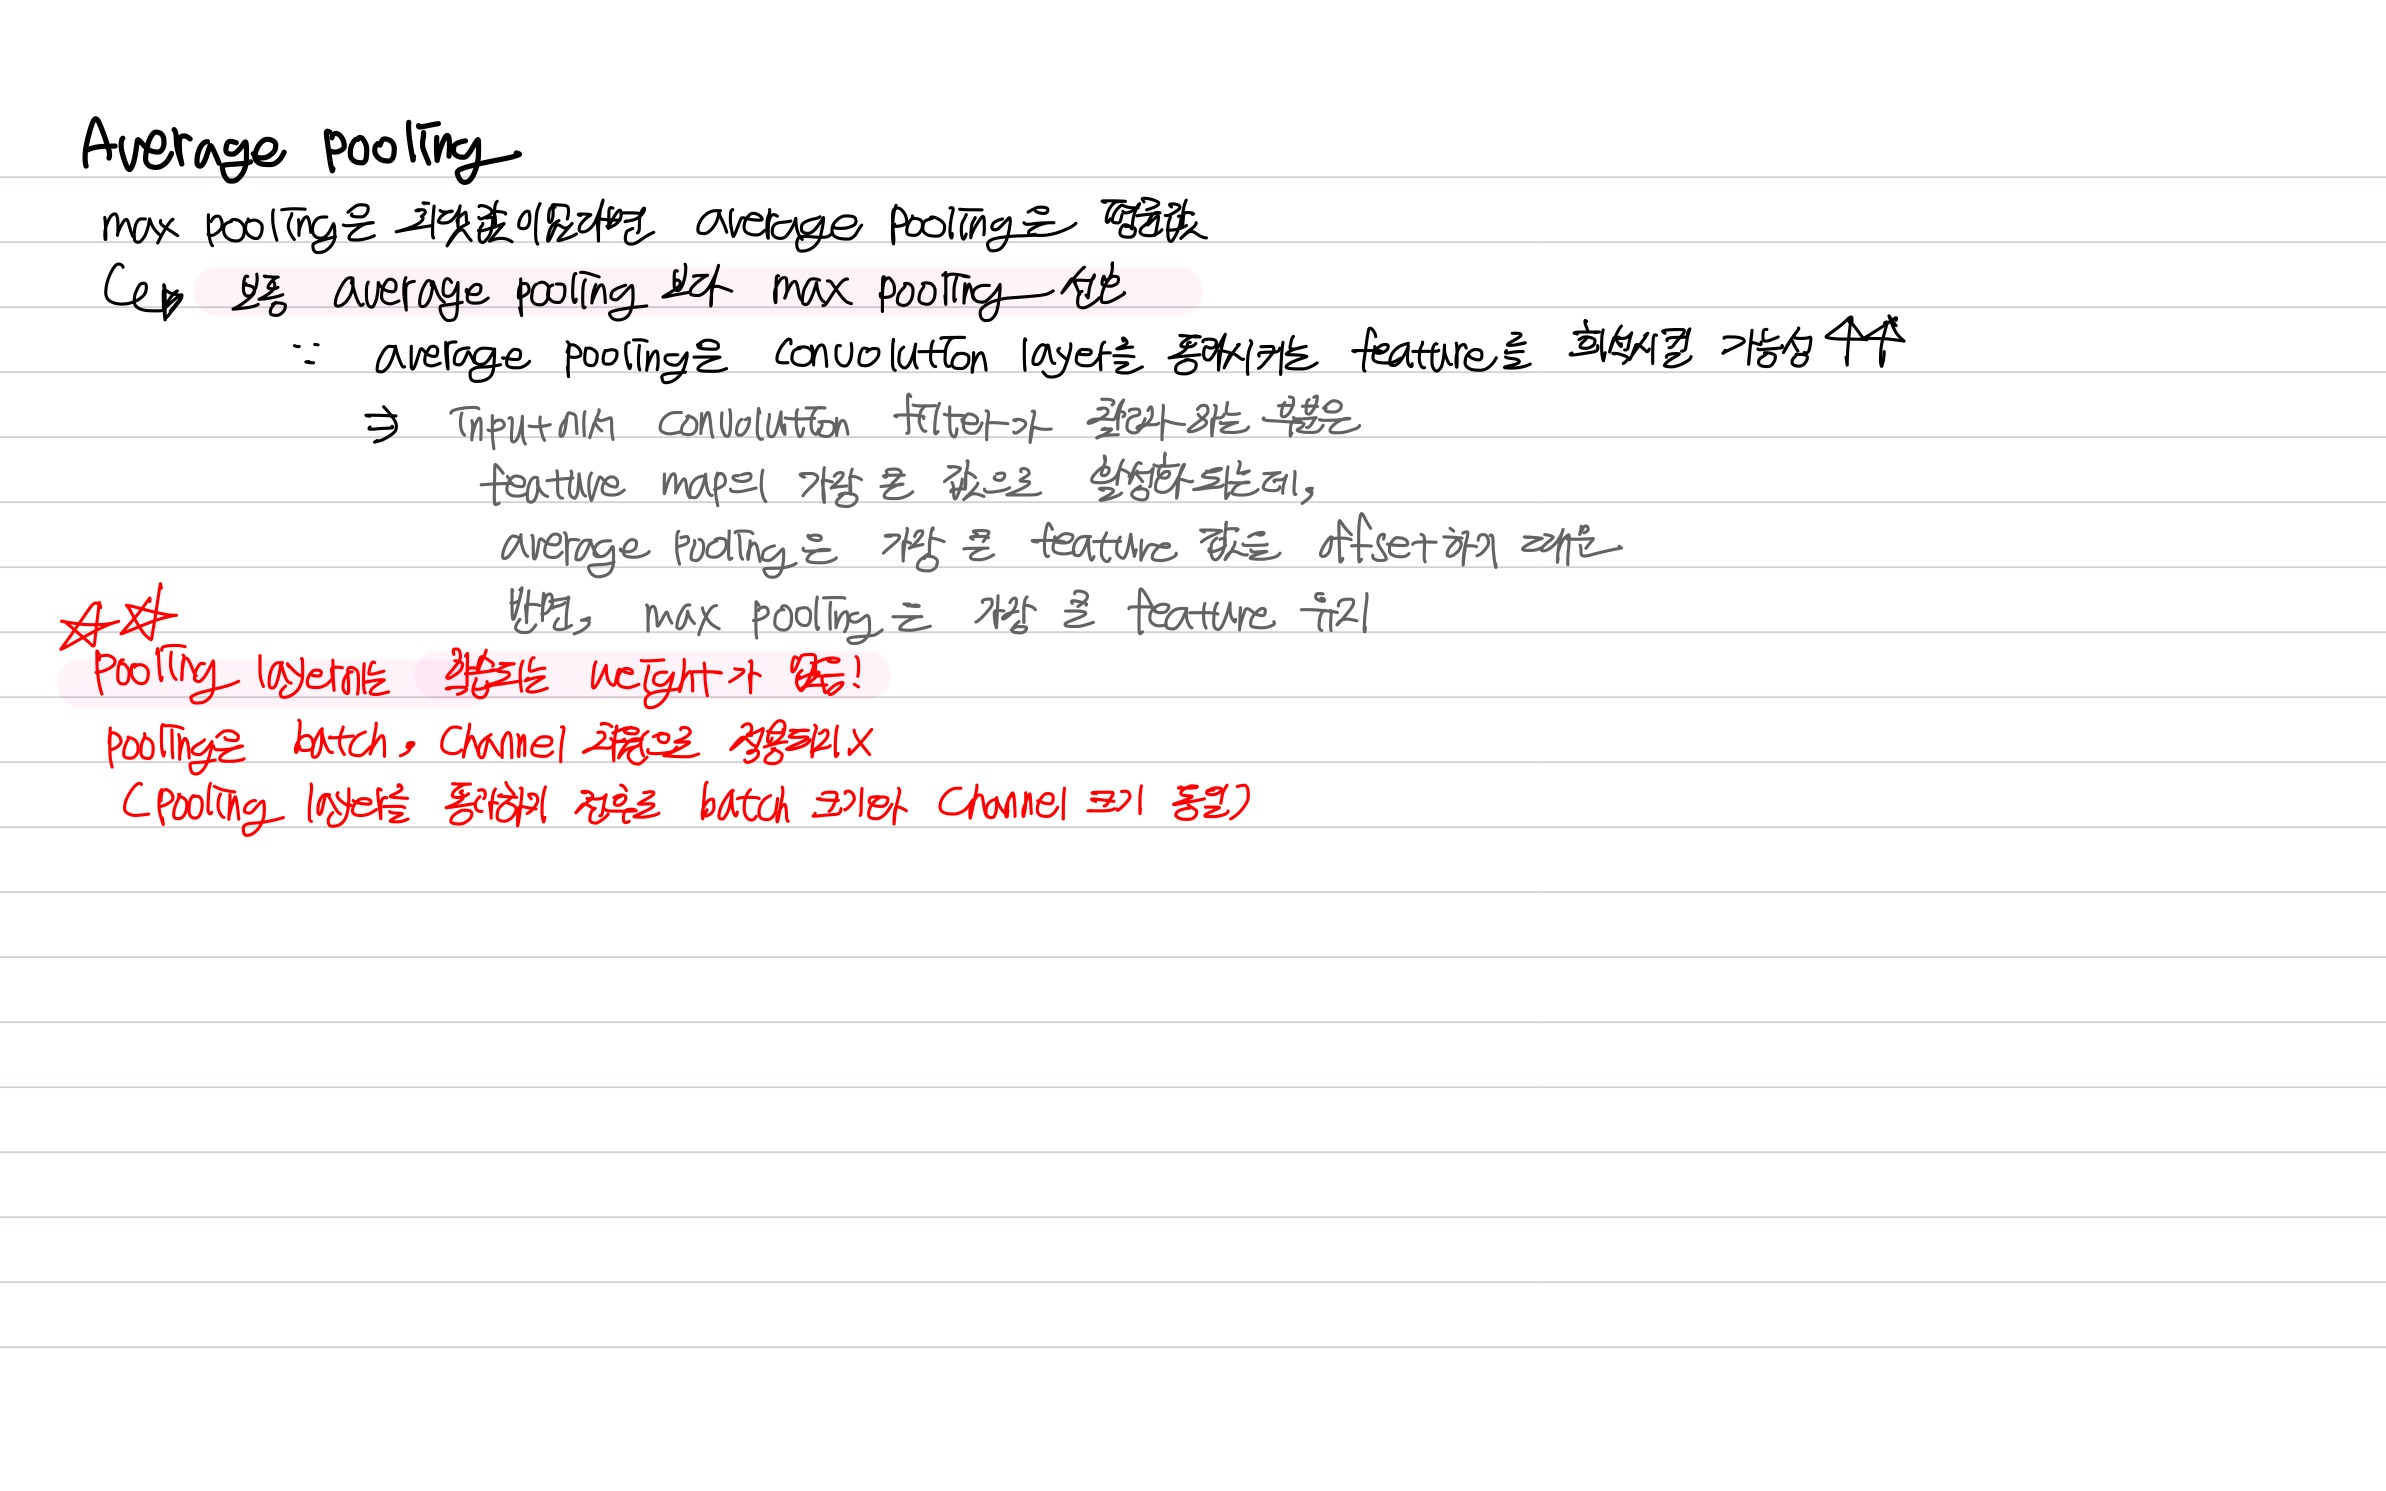 Average pooling
max pooling은 최댓값이었다면 average pooling은 평균값
보통 average pooling 보다 max pooling 선호
∵ average pooling은 convolution layer를 통과시키는 feature를 희석시킬 가능성 ↑↑
⇒ input에서 convolution filter가 관여하는 부분은
feature map의 가장 큰 값으로 활성화 되는데,
average pooling은 가장 큰 feature 값을 offset하기 때문
반면, max pooling은 가장 큰 feature 유지
☆☆
Pooling layer에는 학습되는 weight가 없음!
pooling은 batch, channel 차원으로 적용되지 X
(pooling layer를 통과하기 전후로 batch 크기와 channel 크기 동일)